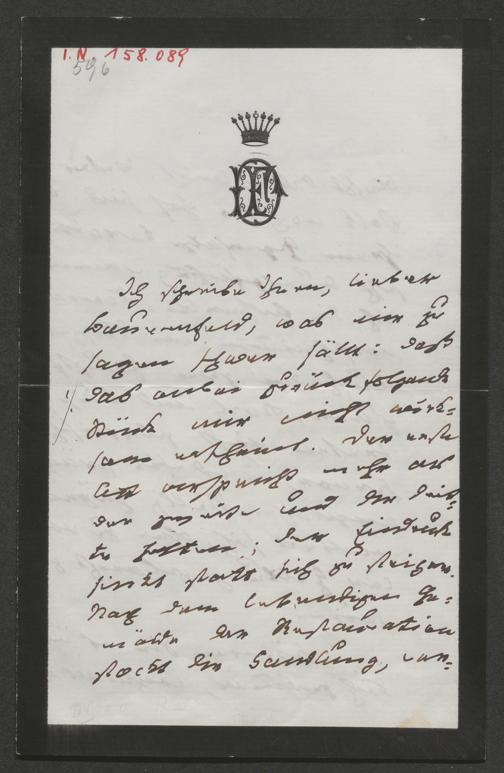 I.N. 158.089
596
Ich schreibe Ihnen, lieber
Bauernfeld, was mir zu
sagen schwer fällt: daß
das anbei zurück folgende
Stück mir nicht wirk-
sam erscheint. Der erste
Akt verspricht mehr als
der zweite und der drit-
te halten; der Eindruck
sinkt statt sich zu steigern.
Nach dem lebendigen Ge-
mälde der Restauration
stockt die Handlung, ver-